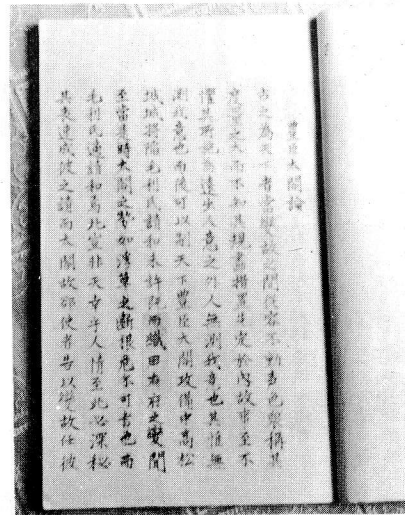 豊臣太閤論
古之為天下者當變故之間從容不動声色衆稱其
意量之大而不知其規畫措置先定於內故事至不
懼其所為遠出人意之外人無測我者也其惟無
測我意也而後可以制天下豊臣太閤攻備中高松
城城将陥毛利氏請和未許既而織田右府之變聞
至當是時太閤之勢如草之断根危不可言也而
毛利氏連請和焉此豈非天幸乎人情至此必深秘
其喪速成彼之請而太閤故郤使者告以變故任彼